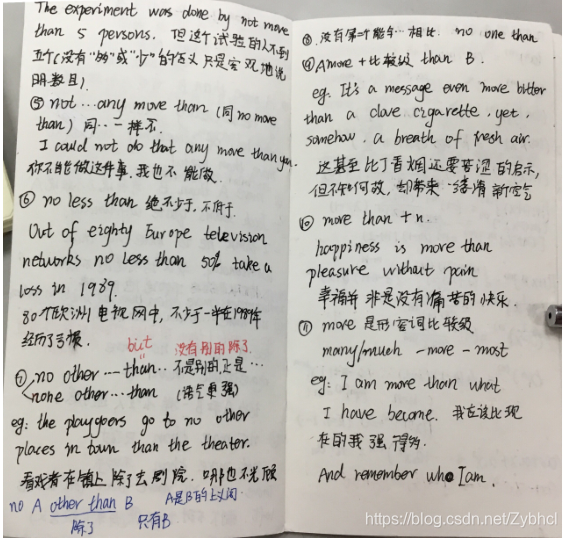 The experiment was done by not more
than 5 persons. 但这个试验的人不到
五个(没有"多"或"少"的含义 只是客观地说
明数目).
⑤ not … any more than (同 no more
than) 同…一样不
I could not do that any more than you.
你不能做这件事,我也不能做.
⑥ no less than 绝不少于,不低于.
Out of eighty Europe television
networks no less than 50% take a
loss in 1989.
80个欧洲电视网中,不少于一半在1989年
经历了亏损.
but 没有别的除了.
⑦ no other … than.. 不是别的正是…
none other … than (语气更强)
eg: the playgoers go to no other
places in town than the theater.
看戏者在镇上除了去剧院,哪也不光顾
no A other than B A是B的上义词.
除了 只有B
⑧ 没有第二个能与…相比. no one than
⑨ A more + 比较级 than B.
eg. It's a message even more bitter
than a clove cigarette, yet,
somehow, a breath of fresh air.
这甚至比丁香烟还要苦涩的启示,
但不知何故,却带来一缕清新空气
⑩ more than + n.
happiness is more than
pleasure without pain
幸福并非是没有痛苦的快乐.
⑪ more 是形容词比较级
many/much - more - most
eg: I am more than what
I have become. 我应该比现
在的我强得多.
And remember who I am.
https://blog.csdn.net/Zybhcl